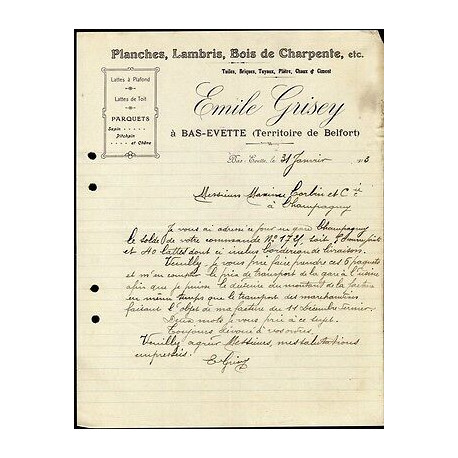 Planches, Lambris, Bois de Charpente, etc.
Tuiles, Briques, Tuyaux, Plâtre, Chaux & Ciment
Lattes à Plafond
Lattes de Toit
PARQUETS
Sapin
Pitchpin
et Chêne
Emile Grisey
à BAS-EVETTE (Territoire de Belfort)
Bas-Evette, le 31 Janvier 3
Messieurs Maxime Corbin et Cie
à Champagney
Je vous ai adressé ce jour en gare Champagney
le solde de votre commande No 1721. Soit 5
et 40 lattes dont ci inclus bordereau de livraison.
Veuillez, je vous prie faire prendre ces 5 paquets
et m'en compter le prix de transport de la gare à l'usine
afin que je puisse le déduire du montant de la facture
en même temps que le transport des marchandises
faisant l'objet de ma facture du 11 Décembre dernier.
Deux mots je vous prie à ce sujet.
Toujours dévoué à vos ordres.
Veuillez agréer Messieurs, mes salutations
empressées.
E Grisey